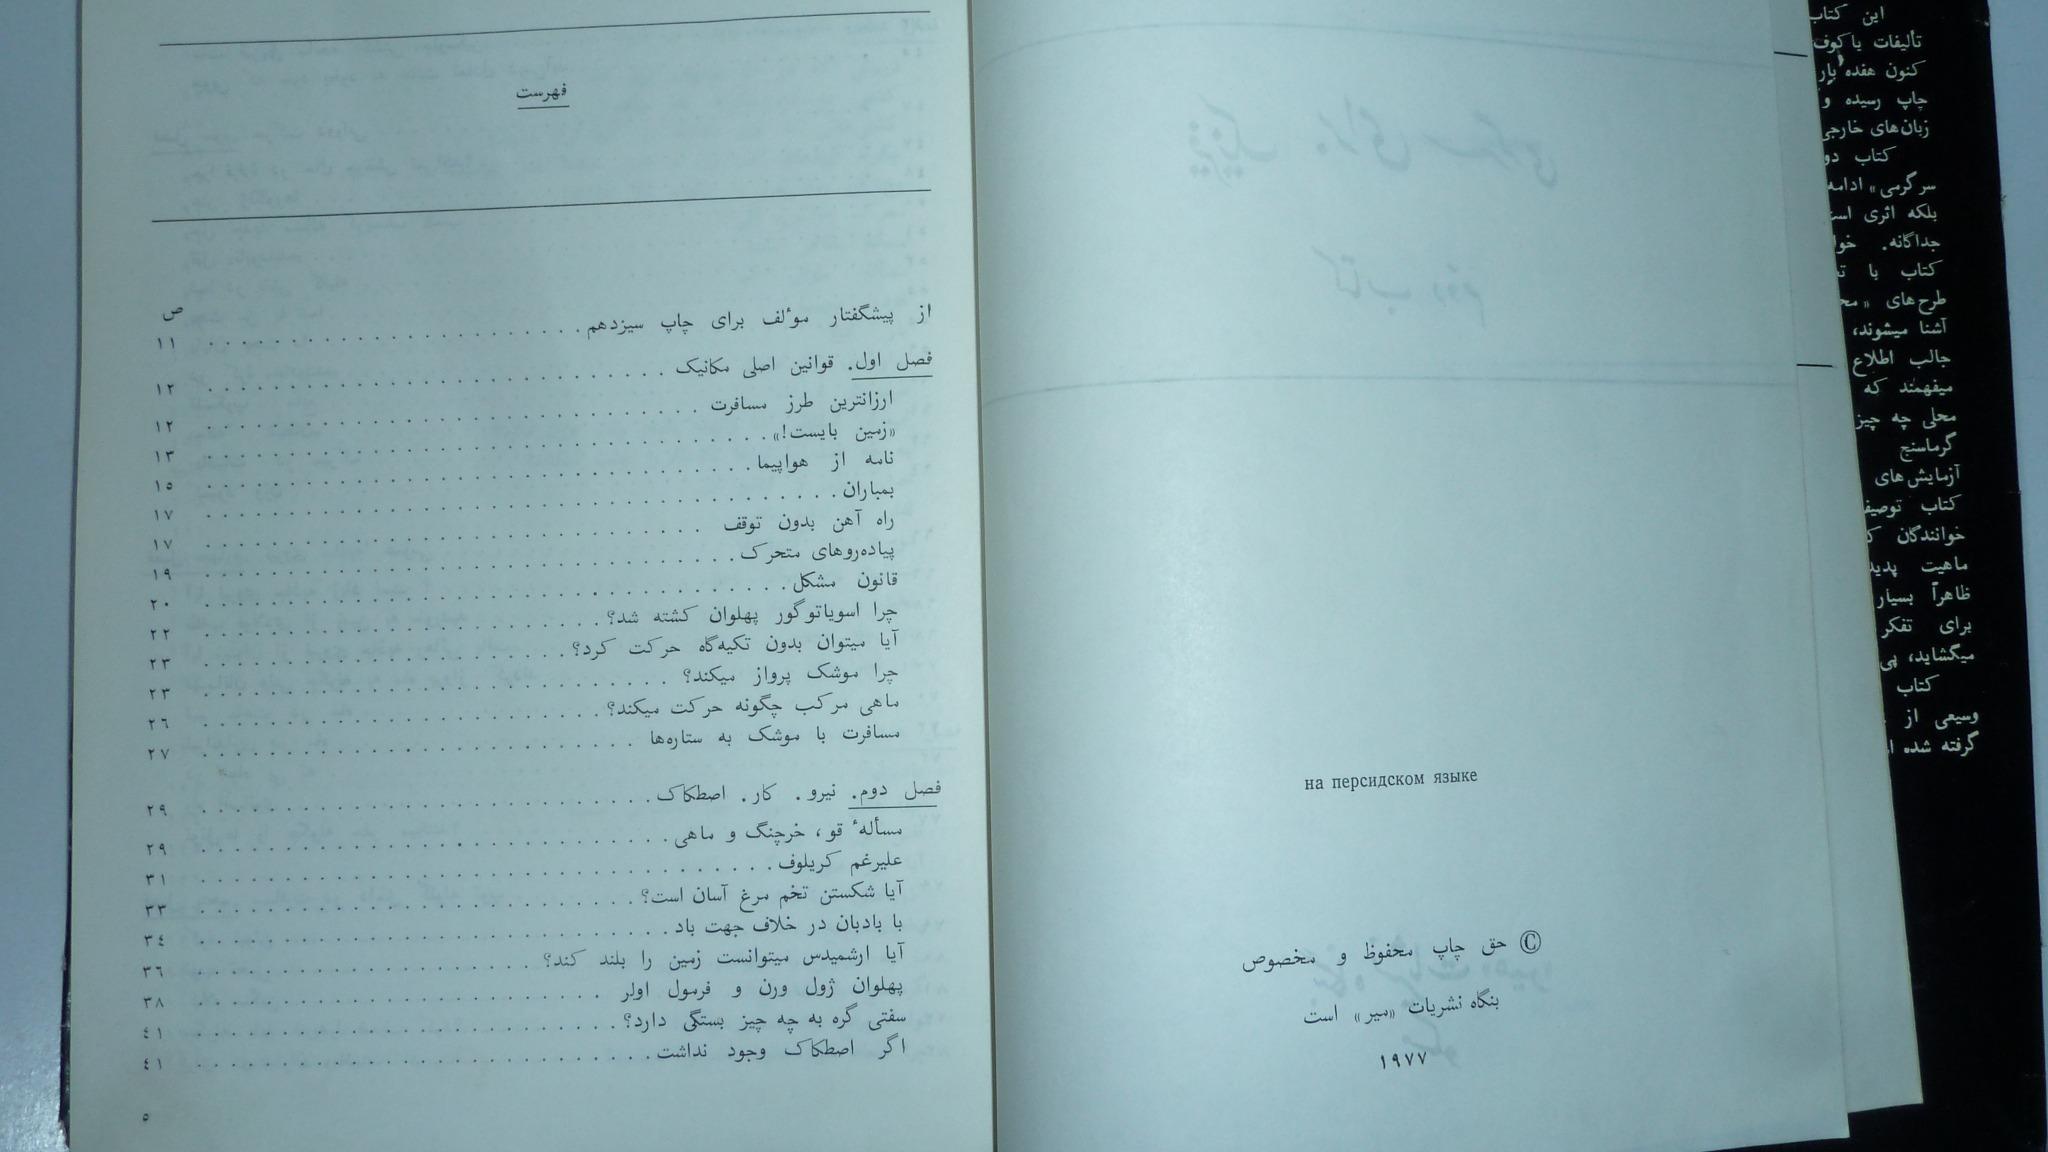 این کتاب
تألیفات یاکوف
کنون هفده بار
چاپ رسیده و
زبان‌های خارجی
کتاب دو
سرگرمی» ادامه
بلکه اثری است
جداگانه. خوا
کتاب با تع
طرح‌های «مح
آشنا میشوند،
جالب اطلاع
میفهمند که
محلی چه چیز
گرماسنج
آزمایش‌های
کتاب توصیف
خوانندگان ک
ماهیت پدید
ظاهراً بسیار
برای تفکر
میگشاید، پی
کتاب
وسیعی از
گرفته شده ا
на персидском языке
© حق چاپ محفوظ و مخصوص
بنگاه نشریات «میر» است
۱۹۷۷
فهرست
ص
از پیشگفتار موٴلف برای چاپ سیزدهم . . . . . . . . . . ۱۱
فصل اول. قوانین اصلی مکانیک . . . . . . . . . . ۱۲
ارزانترین طرز مسافرت . . . . . . . . . . ۱۲
«زمین بایست!» . . . . . . . . . . ۱۳
نامه از هواپیما . . . . . . . . . . ۱۵
بمباران . . . . . . . . . . ۱۷
راه آهن بدون توقف . . . . . . . . . . ۱۷
پیاده‌روهای متحرک . . . . . . . . . . ۱۹
قانون مشکل . . . . . . . . . . ۲۰
چرا اسویاتوگور پهلوان کشته شد؟ . . . . . . . . . . ۲۲
آیا میتوان بدون تکیه‌گاه حرکت کرد؟ . . . . . . . . . . ۲۳
چرا موشک پرواز میکند؟ . . . . . . . . . . ۲۳
ماهی مرکب چگونه حرکت میکند؟ . . . . . . . . . . ۲۶
مسافرت با موشک به ستاره‌ها . . . . . . . . . . ۲۷
فصل دوم. نیرو. کار. اصطکاک . . . . . . . . . . ۲۹
مسألهٔ قو، خرچنگ و ماهی . . . . . . . . . . ۲۹
علیرغم کریلوف . . . . . . . . . . ۳۱
آیا شکستن تخم مرغ آسان است؟ . . . . . . . . . . ۳۳
با بادبان در خلاف جهت باد . . . . . . . . . . ۳٤
آیا ارشمیدس میتوانست زمین را بلند کند؟ . . . . . . . . . . ۳٦
پهلوان ژول ورن و فرمول اولر . . . . . . . . . . ۳۸
سفتی گره به چه چیز بستگی دارد؟ . . . . . . . . . . ٤۱
اگر اصطکاک وجود نداشت . . . . . . . . . . ٤۱
۵